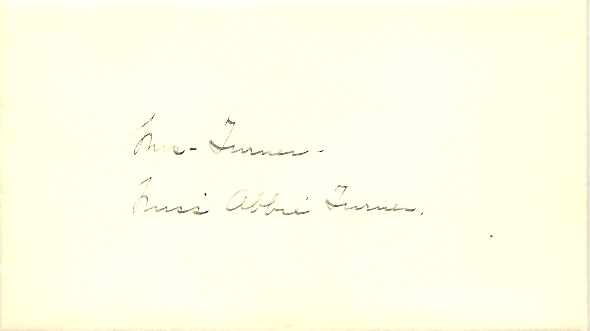 Mrs- Turner-
Miss Abbie Turner.